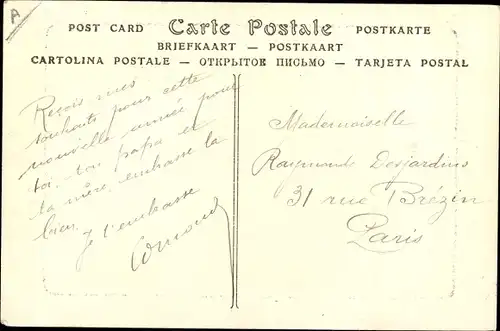 A
POST CARD Carte Postale POSTKARTE
BRIEFKAART — POSTKAART
CARTOLINA POSTALE — ОТКРЫТОЕ ПИСЬМО — TARJETA POSTAL
Reçois mes
souhaits pour cette
nouvelle année pour
toi, ton papa et
ta mère, embrasse la
bien.
Je t'embrasse
Mademoiselle
Raymonde Desjardins
31 rue Brézin
Paris